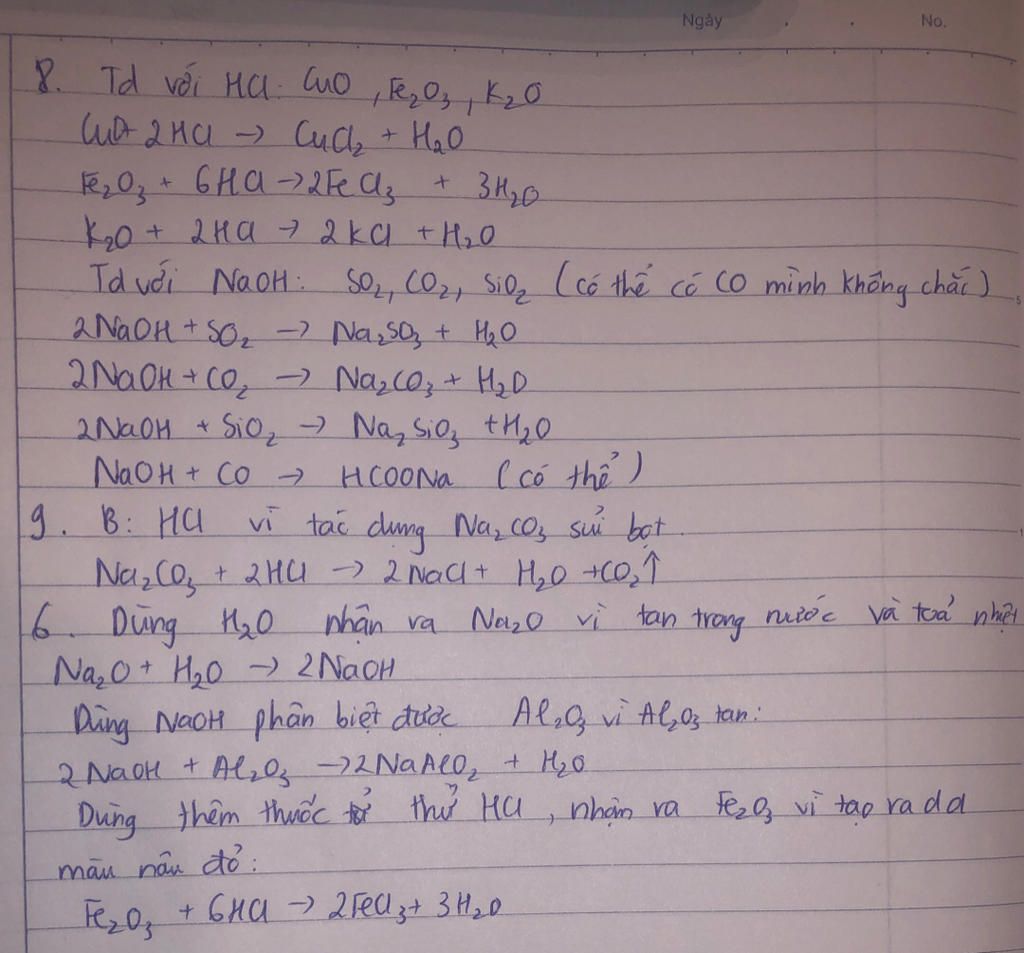 Ngày . . No.
8. Td với HCl: CuO, Fe₂O₃, K₂O
CuO+ 2HCl → CuCl₂ + H₂O
Fe₂O₃ + 6HCl → 2FeCl₃ + 3H₂O
K₂O + 2HCl → 2KCl + H₂O
Td với NaOH: SO₂, CO₂, SiO₂ (có thể có CO mình không chắc)
2NaOH + SO₂ → Na₂SO₃ + H₂O
2NaOH + CO₂ → Na₂CO₃ + H₂O
2NaOH + SiO₂ → Na₂SiO₃ + H₂O
NaOH + CO → HCOONa (có thể)
9. B: HCl vì tác dụng Na₂CO₃ sủi bọt
Na₂CO₃ + 2HCl → 2NaCl + H₂O + CO₂↑
6. Dùng H₂O nhận ra Na₂O vì tan trong nước và toả nhiệt
Na₂O + H₂O → 2NaOH
Dùng NaOH phân biệt được Al₂O₃ vì Al₂O₃ tan:
2NaOH + Al₂O₃ → 2NaAlO₂ + H₂O
Dùng thêm thuốc thử HCl, nhận ra Fe₂O₃ vì tạo ra dd
màu nâu đỏ:
Fe₂O₃ + 6HCl → 2FeCl₃ + 3H₂O